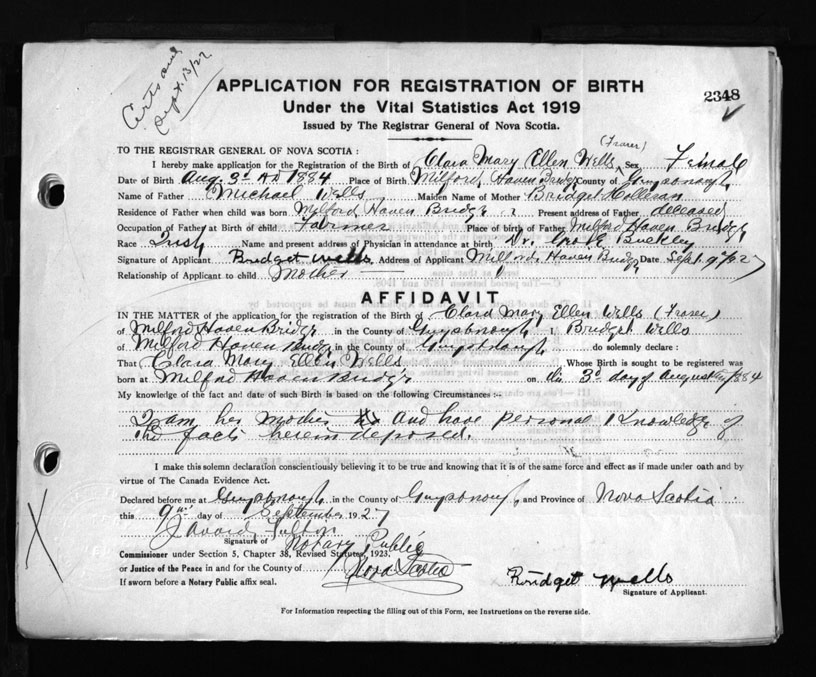 Sept. 13/27
APPLICATION FOR REGISTRATION OF BIRTH
2348
Under the Vital Statistics Act 1919
Issued by The Registrar General of Nova Scotia.
TO THE REGISTRAR GENERAL OF NOVA SCOTIA:
(Frarer)
I hereby make application for the Registration of the Birth of Clara Mary Ellen Wells Sex Female
Date of Birth Aug. 3d AD 1884 Place of Birth Milford Haven Bridge County of Guysborough
Name of Father Michael Wells Maiden Name of Mother Bridget
Residence of Father when child was born Milford Haven Bridge Present address of Father deceased
Occupation of Father at Birth of child Farmer Place of birth of Father Milford Haven Bridge
Race Irish Name and present address of Physician in attendance at birth Dr. Geo E Buckley
Signature of Applicant Bridget Wells Address of Applicant Milford Haven Bridge Date Sept. 9/27
Relationship of Applicant to child Mother
AFFIDAVIT
IN THE MATTER of the application for the registration of the Birth of Clara Mary Ellen Wells (Frarer)
of Milford Haven Bridge in the County of Guysborough I, Bridget Wells
of Milford Haven Bridge in the County of Guysborough do solemnly declare:
That Clara Mary Ellen Wells Whose Birth is sought to be registered was
born at Milford Haven Bridge on the 3d day of August 1884
My knowledge of the fact and date of such Birth is based on the following Circumstances :-
I am her mother and have personal knowledge of
the facts herein deposed.
I make this solemn declaration conscientiously believing it to be true and knowing that it is of the same force and effect as if made under oath and by
virtue of The Canada Evidence Act.
Declared before me at Guysborough in the County of Guysborough and Province of Nova Scotia.
this 9th day of September 1927
Signature of Notary Public
Commissioner under Section 5, Chapter 38, Revised Statutes, 1923,
or Justice of the Peace in and for the County of Nova Scotia
If sworn before a Notary Public affix seal.
Bridget Wells
Signature of Applicant.
For Information respecting the filling out of this Form, see Instructions on the reverse side.
X